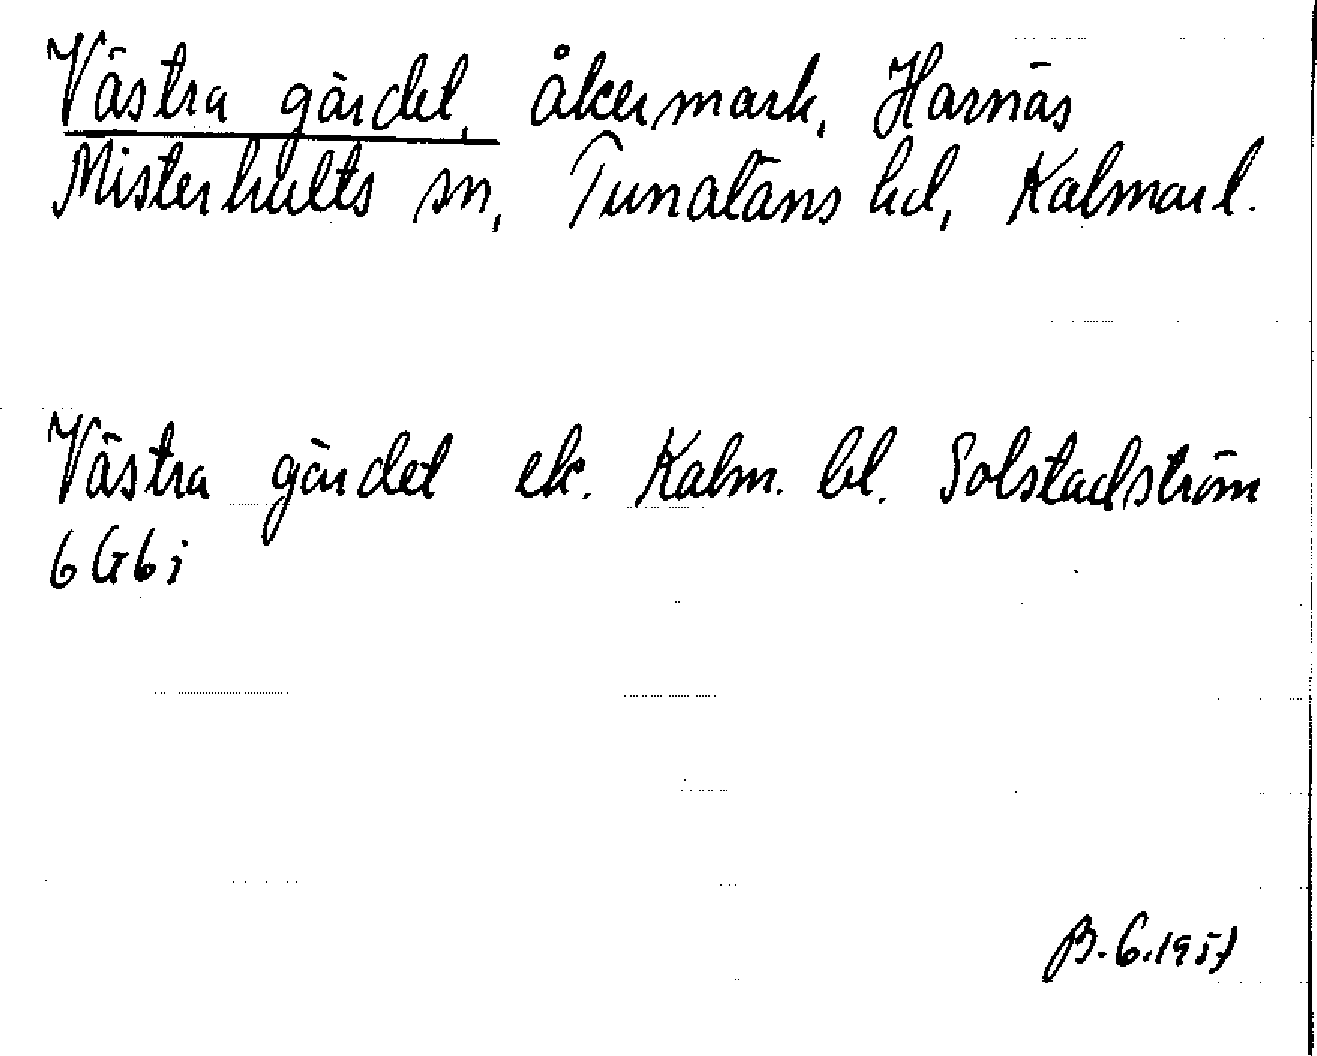 Västra gärdet, åkermark, Harnäs
Misterhults sn, Tunaläns hd, Kalmar l.
Västra gärdet ek. Kalm. bl. Solstadström
6G6i
B.G.1957